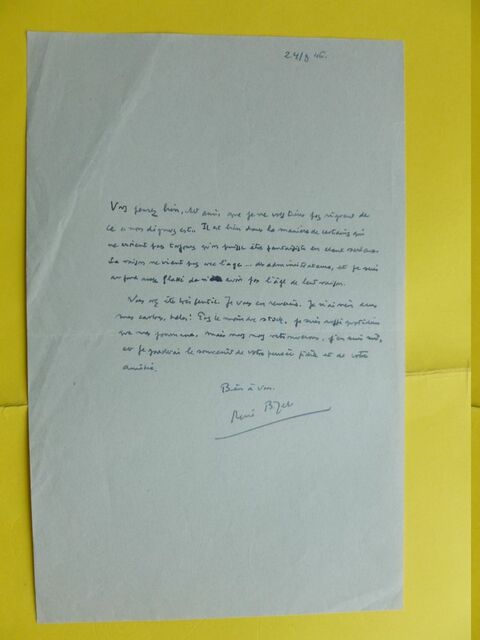 24/9 46.
Vous pensez bien, cher ami, que je ne vous tiens pas rigueur de
ce
. Il est bien dans la manière de certains qui
ne croient pas toujours qu'on puisse être fantaisiste en étant sérieux.
La raison ne vient pas avec l'âge... des administrateurs, et je suis
au fond assez flatté de n' avoir pas l'âge de leur raison.
Vous avez été très gentil. Je vous en remercie. Je n'ai rien dans
mes cartons, hélas! Pas le moindre stock, je suis aussi
que nos journaux, mais nous nous retrouverons, j'en suis sûr,
et je garderai le souvenir de votre pensée fidèle et de votre
amitié.
Bien à vous.
René